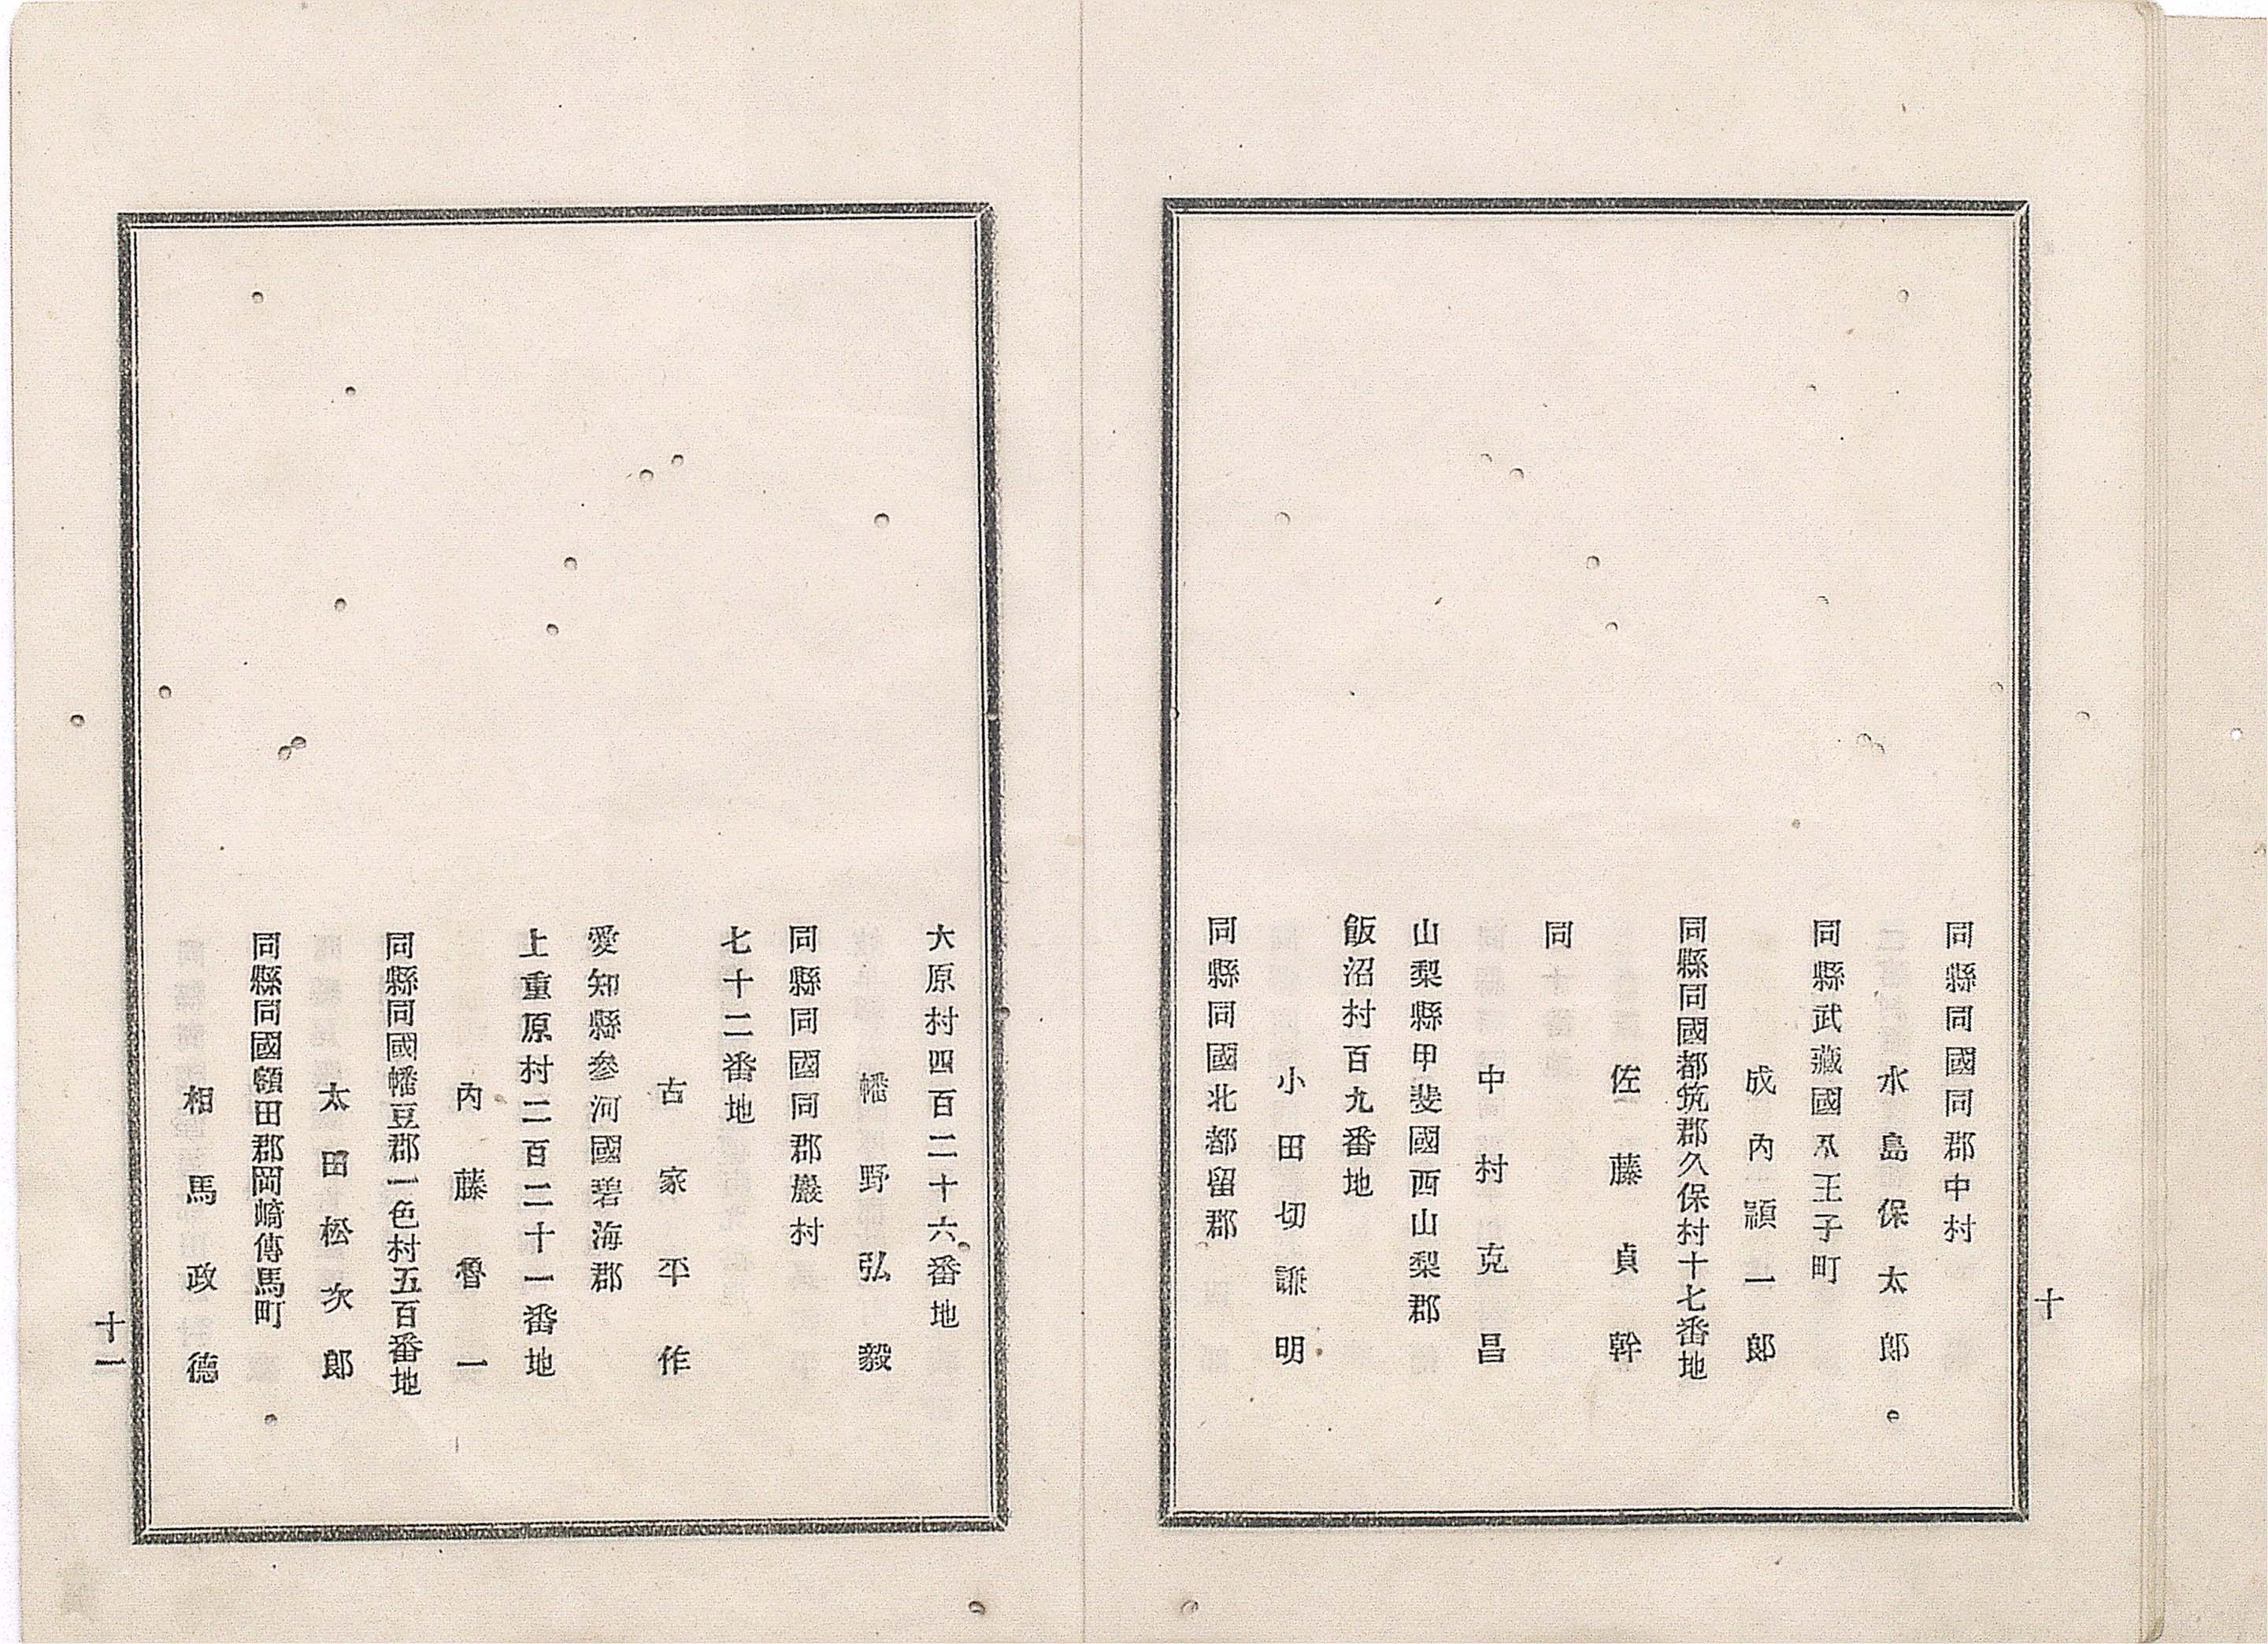 十
同縣同國同郡中村
水島保太郎
同縣武藏國八王子町
成內頴一郎
同縣同國都筑郡久保村十七番地
佐藤貞幹
同
中村克昌
山梨縣甲斐國西山梨郡
飯沼村百九番地
小田切謙明
同縣同國北都留郡
大原村四百二十六番地
幡野弘毅
同縣同國同郡巖村
七十二番地
古家平作
愛知縣參河國碧海郡
上重原村二百二十一番地
內藤魯一
同縣同國幡豆郡一色村五百番地
太田松次郎
同縣同國額田郡岡崎傳馬町
相馬政德
十一